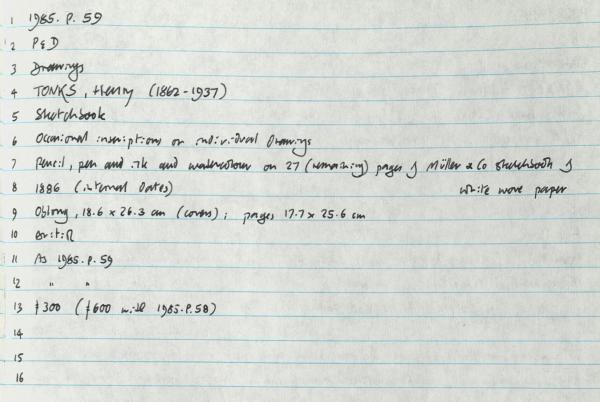 1 1985.P.59
2 P&D
3 Drawings
4 TONKS, Henry (1862-1937)
5 Sketchbook
6 Occasional inscriptions on individual drawings
7 Pencil, pen and ink and watercolour on 27 (remaining) pages of Müller & Co sketchbook of
white wove paper
8 1886 (internal dates)
9 Oblong, 18.6 x 26.3 cm (covers); pages 17.7 x 25.6 cm
10 British
11 As 1985.P.59
12 " "
13 £300 (£600 with 1985.P.58)
14
15
16